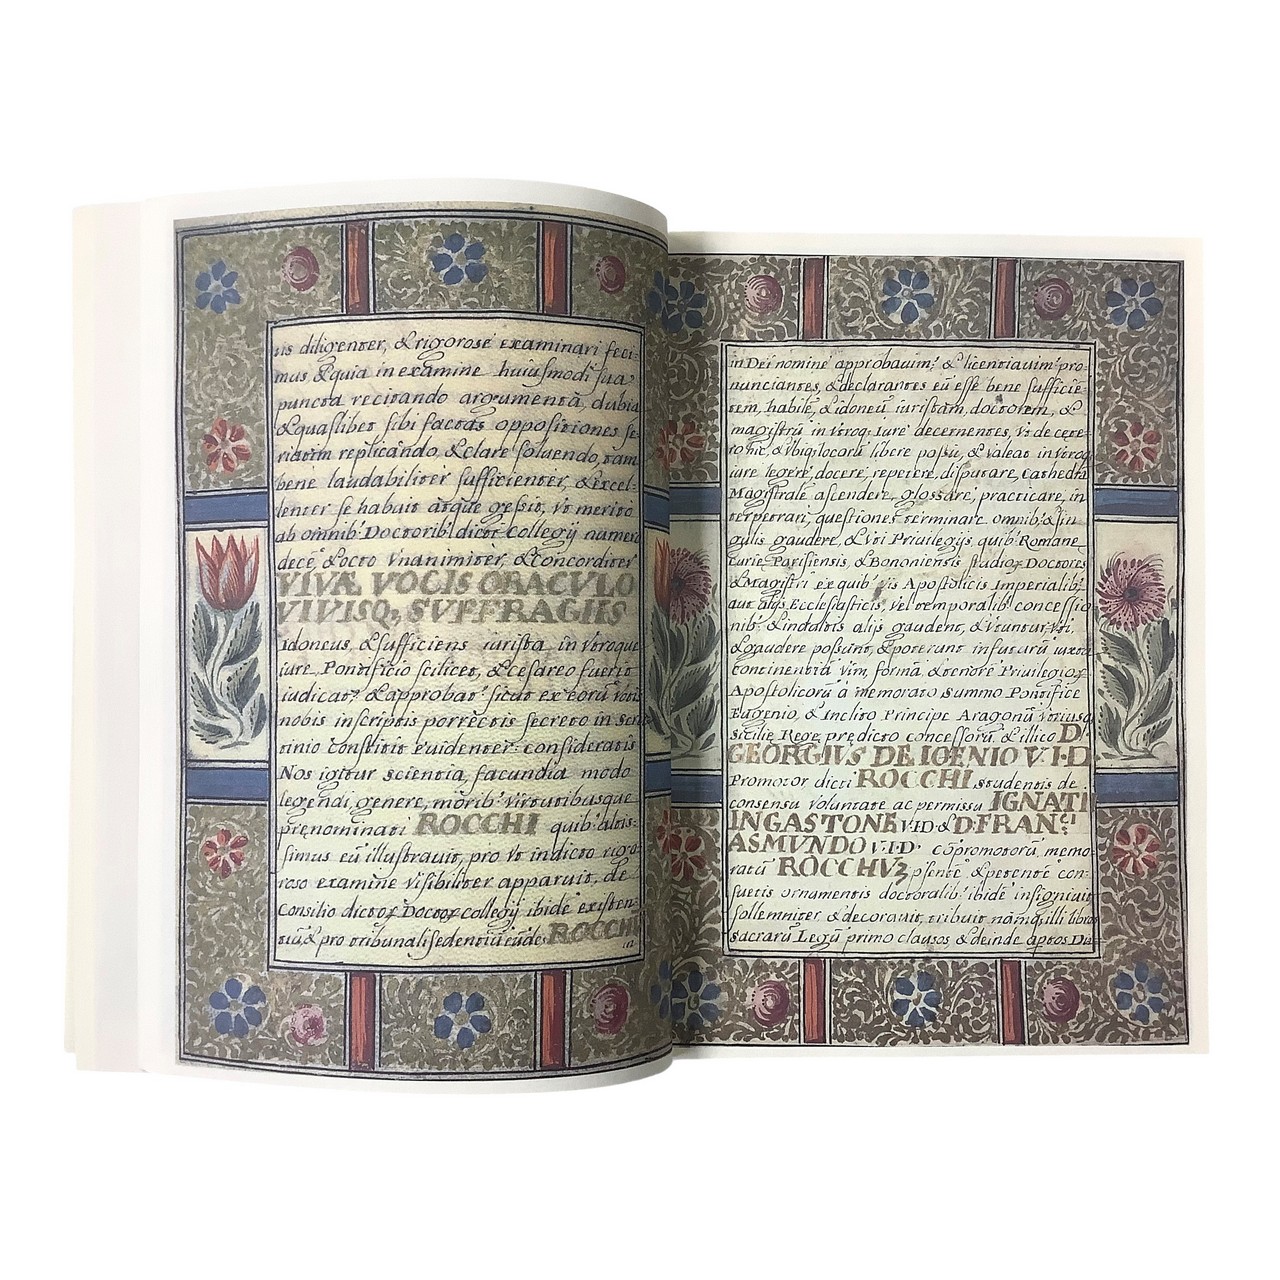 us diligenter, & rigorosè examinari feci=
mus & quia in examine huiusmodi sua
puncta recitando argumentà, dubia
& quaslibet sibi factas oppositiones se=
riatim replicando, & clare solvendo, tam
bene laudabiliter sufficienter, & excel=
lenter se habuit atque gessit, vt merito
ab omnib' Doctorib' dicti Collegij numero
decē, & octo vnanimiter, & concorditer
VIVÆ VOCIS ORACULO
VIVISQ; SUFFRAGIIS
Idoneus, & sufficiens iurista, in vtroque
iure, Pontificio scilicet, & cesareo fuerit
iudicat9, & approbat' sicut ex eorū votis
nobis in scriptis porrectis secreto in scru
tinio constitit euidenter: consideratis
Nos igitur scientia, facundia modo
legendi, genere, morib' virtutibusque
prenominati ROCCHI quib' altis=
simus eū illustrauit, pro vt in dicto rigo
roso examine visibiliter apparuit, de
Consilio dictoꝝ Doctoꝝ collegij ibidē existen=
tiū & pro tribunali sedentiū eūdē ROCCHŪ
in Dei nomine approbauim' & licentiauim' pro=
nunciantes, & declarantes eū esse bene sufficiē=
tem, habilē, & idoneū iuristam, doctorem, &
magistrū in vtroq; Iure decernentes, vt de cete=
ro hic, & vbiq; locorū libere possit, & valeat in vtroq;
iure legere, docere, repetere, disputare, Cathedrā
Magistrale ascendere, glossare, practicare, in
terpetrari, questiones terminare omnib' & sin
gulis gaudere, & vti Priuilegijs quib' Romane
Curie Parisiensis, & Bononiensis studioꝝ Doctores
& Magistri ex quib' vis Apostolicis Imperialib'
aut alijs Ecclesiasticis, vel temporalib' concessio
nib' & indultis alijs gaudent, & vtuntur, vti
& gaudere possunt, & poterunt in futurū iuxta
continentiā vim, formā & tenorē Priuilegioꝝ
Apostolicorū à memorato Summo Pontifice
Eugenio, & Inclito Principe Aragonū vtriusq;
Sicilie Rege predicto concessorū, & ilico D.
GEORGIUS DE IOENIO V.I.D.
Promotor dicti ROCCHI studentis de
consensu voluntate ac permissu IGNATI
INGASTONE V.I.D. & D. FRANCI
ASMUNDO V.I.D. cōpromotorū memo=
ratū ROCCHUM psente & petente con=
suetis ornamentis doctoralib' ibide insigniuit
sollemniter & decorauit, tribuit nāmq; illi libros
sacrarū Legū primo clausos & deinde aptos Du=